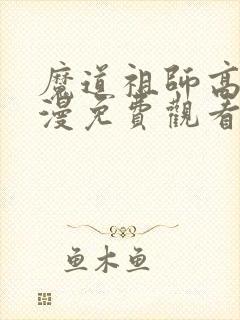 魔道祖師高
漫免費觀看
鱼木鱼